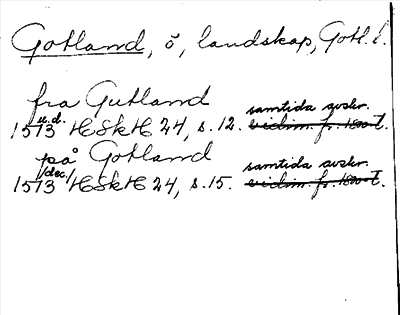 Gotland, ö, landskap, Gotl. l.
fra Gutland
u.d. samtida avskr.
1573 HSkH 24, s. 12. vidim. fr. 1800-t.
på Gotland
/dec./ samtida avskr.
1573 HSkH 24, s. 15. vidim. fr. 1800-t.